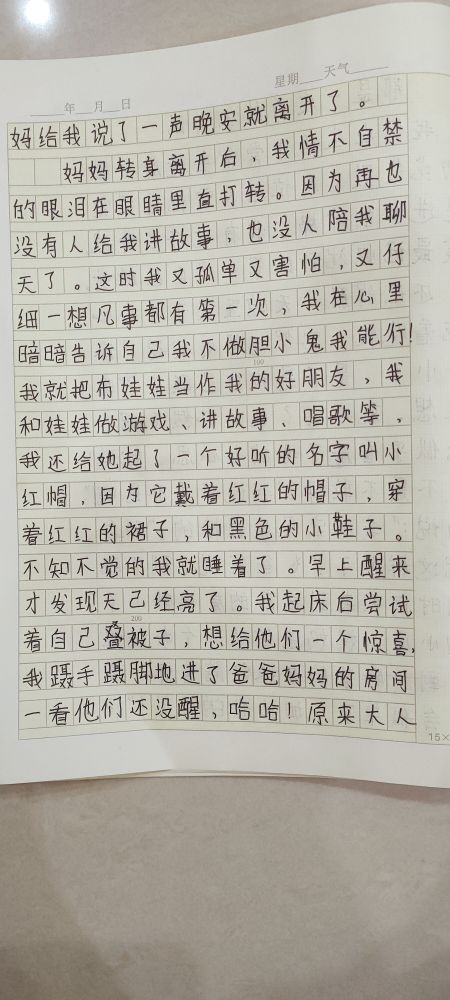 星期 天气
年 月 日
妈给我说了一声晚安就离开了。
妈妈转身离开后，我情不自禁
的眼泪在眼睛里直打转。因为再也
没有人给我讲故事，也没人陪我聊
天了。这时我又孤单又害怕，又仔
细一想凡事都有第一次，我在心里
暗暗告诉自己我不做胆小鬼我能行！
100
我就把布娃娃当作我的好朋友，我
和娃娃做游戏、讲故事、唱歌等，
我还给她起了一个好听的名字叫小
红帽，因为它戴着红红的帽子，穿
着红红的裙子，和黑色的小鞋子。
不知不觉的我就睡着了。早上醒来
才发现天已经亮了。我起床后尝试
200
着自己叠被子，想给他们一个惊喜，
我蹑手蹑脚地进了爸爸妈妈的房间
一看他们还没醒，哈哈！原来大人
15×